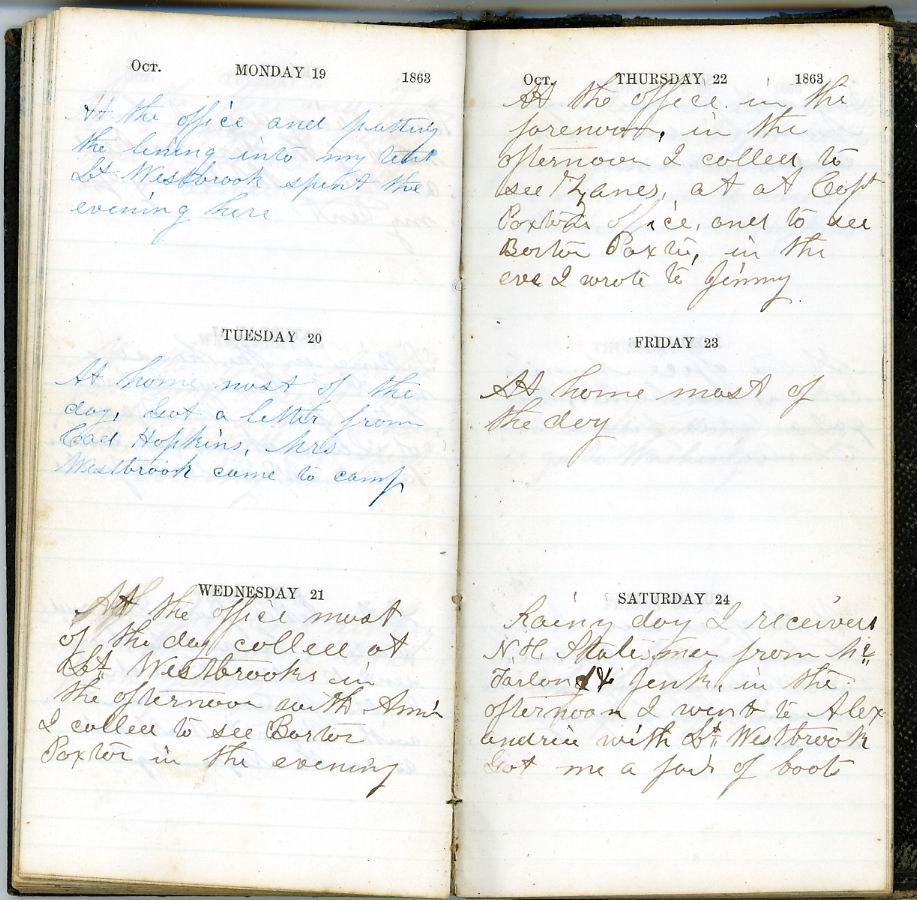 Oct. MONDAY 19 1863
At the office and putting
the lining into my tent
Lt Westbrook spent the
evening here
TUESDAY 20
At home most of the
day, Got a letter from
Hopkins, Mrs
Westbrook came to camp
WEDNESDAY 21
At the office most
of the day called at
Lt. Westbrooks in
the afternoon with
I called to see
Poxton in the evening
Oct. THURSDAY 22 1863
At the office in the
forenoon, in the
afternoon I called to
see at at Capt
office, and to see
in the
eve I wrote to Jinny
FRIDAY 23
At home most of
the day
SATURDAY 24
Rainy day I received
N.H. Statesman from
Jenk, in the
afternoon I went to Alex
andria with Lt. Westbrook
Got me a pair of boots